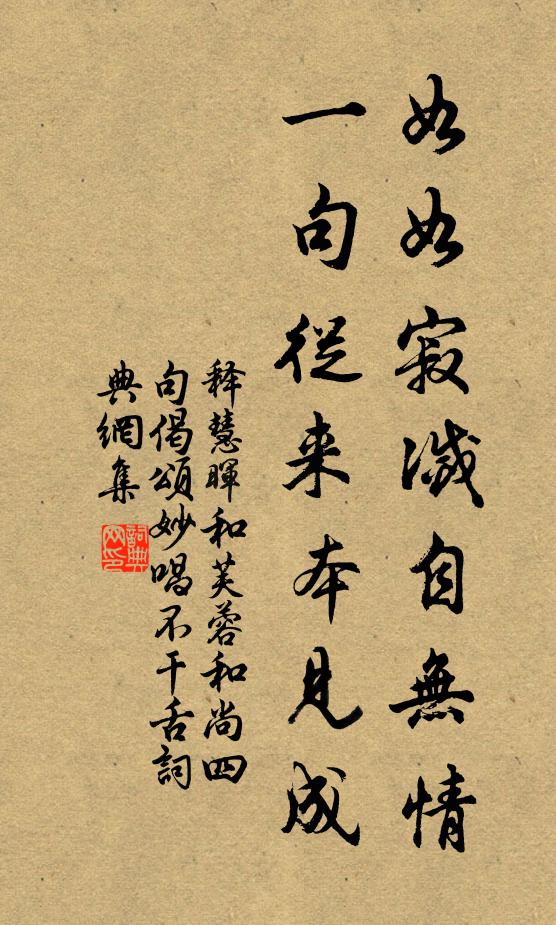 如如寂滅自無情
一句從来本見成
释慧暉和芙蓉和尚四
句偈頌妙唱不干舌詞
典網集
詞典
网印